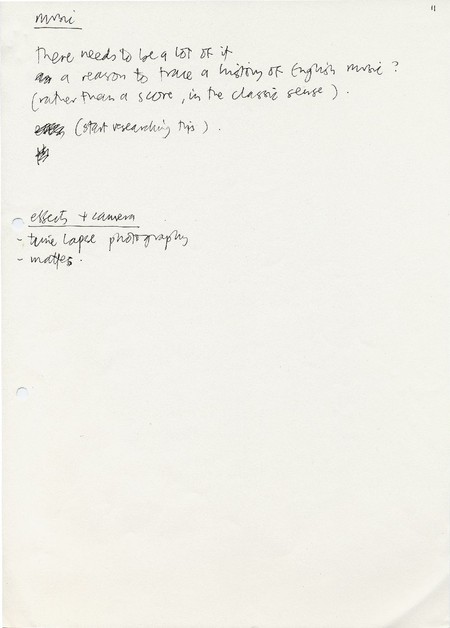 11
music
there needs to be a lot of it
a reason to trace a history of English music ?
(rather than a score, in the classic sense) .
(start researching this) .
effects + camera
- time lapse photography
- mattes .